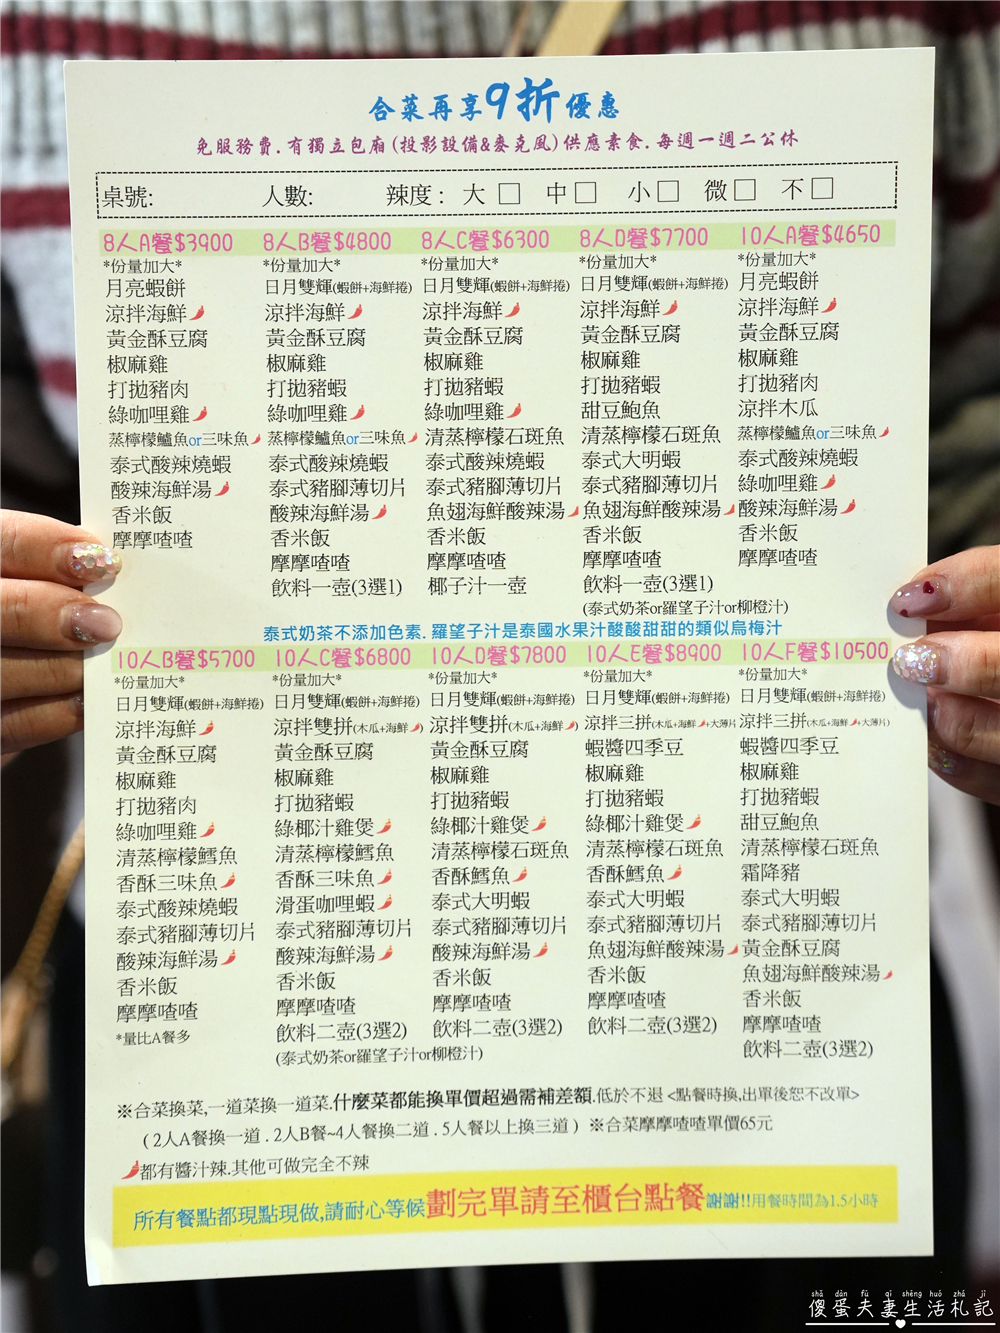 合菜再享9折優惠
免服務費.有獨立包廂(投影設備&麥克風)供應素食.每週一週二公休
桌號: 人數: 辣度: 大□ 中□ 小□ 微□ 不□
8人A餐$3900
*份量加大*
月亮蝦餅
涼拌海鮮
黃金酥豆腐
椒麻雞
打拋豬肉
綠咖哩雞
蒸檸檬鱸魚or三味魚
泰式酸辣燒蝦
酸辣海鮮湯
香米飯
摩摩喳喳
8人B餐$4800
*份量加大*
日月雙輝(蝦餅+海鮮捲)
涼拌海鮮
黃金酥豆腐
椒麻雞
打拋豬蝦
綠咖哩雞
蒸檸檬鱸魚or三味魚
泰式酸辣燒蝦
泰式豬腳薄切片
酸辣海鮮湯
香米飯
摩摩喳喳
飲料一壺(3選1)
8人C餐$6300
*份量加大*
日月雙輝(蝦餅+海鮮捲)
涼拌海鮮
黃金酥豆腐
椒麻雞
打拋豬蝦
綠咖哩雞
清蒸檸檬石斑魚
泰式酸辣燒蝦
泰式豬腳薄切片
魚翅海鮮酸辣湯
香米飯
摩摩喳喳
椰子汁一壺
8人D餐$7700
*份量加大*
日月雙輝(蝦餅+海鮮捲)
涼拌海鮮
黃金酥豆腐
椒麻雞
打拋豬蝦
甜豆鮑魚
清蒸檸檬石斑魚
泰式大明蝦
泰式豬腳薄切片
魚翅海鮮酸辣湯
香米飯
摩摩喳喳
飲料一壺(3選1)
(泰式奶茶or羅望子汁or柳橙汁)
10人A餐$4650
*份量加大*
月亮蝦餅
涼拌海鮮
黃金酥豆腐
椒麻雞
打拋豬肉
涼拌木瓜
蒸檸檬鱸魚or三味魚
泰式酸辣燒蝦
綠咖哩雞
酸辣海鮮湯
香米飯
摩摩喳喳
泰式奶茶不添加色素.羅望子汁是泰國水果汁酸酸甜甜的類似烏梅汁
10人B餐$5700
*份量加大*
日月雙輝(蝦餅+海鮮捲)
涼拌海鮮
黃金酥豆腐
椒麻雞
打拋豬肉
綠咖哩雞
清蒸檸檬鱈魚
香酥三味魚
泰式酸辣燒蝦
泰式豬腳薄切片
酸辣海鮮湯
香米飯
摩摩喳喳
*量比A餐多
10人C餐$6800
*份量加大*
日月雙輝(蝦餅+海鮮捲)
涼拌雙拼(木瓜+海鮮)
黃金酥豆腐
椒麻雞
打拋豬蝦
綠椰汁雞煲
清蒸檸檬鱈魚
香酥三味魚
滑蛋咖哩蝦
泰式豬腳薄切片
酸辣海鮮湯
香米飯
摩摩喳喳
飲料二壺(3選2)
(泰式奶茶or羅望子汁or柳橙汁)
10人D餐$7800
*份量加大*
日月雙輝(蝦餅+海鮮捲)
涼拌雙拼(木瓜+海鮮)
黃金酥豆腐
椒麻雞
打拋豬蝦
綠椰汁雞煲
清蒸檸檬石斑魚
香酥鱈魚
泰式大明蝦
泰式豬腳薄切片
酸辣海鮮湯
香米飯
摩摩喳喳
飲料二壺(3選2)
10人E餐$8900
*份量加大*
日月雙輝(蝦餅+海鮮捲)
涼拌三拼(木瓜+海鮮+大薄片)
蝦醬四季豆
椒麻雞
打拋豬蝦
綠椰汁雞煲
清蒸檸檬石斑魚
香酥鱈魚
泰式大明蝦
泰式豬腳薄切片
魚翅海鮮酸辣湯
香米飯
摩摩喳喳
飲料二壺(3選2)
10人F餐$10500
*份量加大*
日月雙輝(蝦餅+海鮮捲)
涼拌三拼(木瓜+海鮮+大薄片)
蝦醬四季豆
椒麻雞
打拋豬蝦
甜豆鮑魚
清蒸檸檬石斑魚
霜降豬
泰式大明蝦
泰式豬腳薄切片
黃金酥豆腐
魚翅海鮮酸辣湯
香米飯
摩摩喳喳
飲料二壺(3選2)
※合菜換菜,一道菜換一道菜.什麼菜都能換單價超過需補差額.低於不退<點餐時換,出單後恕不改單>
(2人A餐換一道.2人B餐~4人餐換二道.5人餐以上換三道) ※合菜摩摩喳喳單價65元
都有醬汁辣.其他可做完全不辣
所有餐點都現點現做,請耐心等候劃完單請至櫃台點餐謝謝!!用餐時間為1.5小時
shǎ dàn fū qī shēng huó zhá jì
傻蛋夫妻生活札記